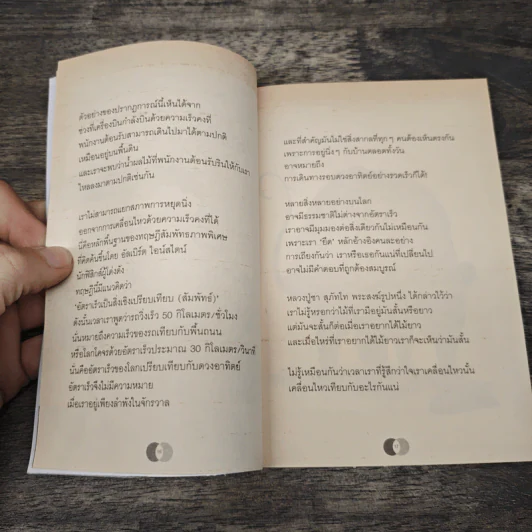 ตัวอย่างของปรากฏการณ์นี้เห็นได้จาก
ช่วงที่เครื่องบินกำลังบินด้วยความเร็วคงที่
พนักงานต้อนรับสามารถเดินไปมาได้ตามปกติ
เหมือนอยู่บนพื้นดิน
และเราจะพบว่าน้ำผลไม้ที่พนักงานต้อนรับรินให้กับเรา
ไหลลงมาตามปกติเช่นกัน
เราไม่สามารถแยกสภาพการหยุดนิ่ง
ออกจากการเคลื่อนไหวด้วยความเร็วคงที่ได้
นี่คือหลักพื้นฐานของทฤษฎีสัมพัทธภาพพิเศษ
ที่คิดค้นขึ้นโดย อัลเบิร์ต ไอน์สไตน์
นักฟิสิกส์ผู้โด่งดัง
ทฤษฎีนี้มีแนวคิดว่า
'อัตราเร็วเป็นสิ่งเชิงเปรียบเทียบ (สัมพัทธ์)'
ดังนั้นเวลาเราพูดว่ารถวิ่งเร็ว 50 กิโลเมตร/ชั่วโมง
นั่นหมายถึงความเร็วของรถเทียบกับพื้นถนน
หรือโลกโคจรด้วยอัตราเร็วประมาณ 30 กิโลเมตร/วินาที
นั่นคืออัตราเร็วของโลกเปรียบเทียบกับดวงอาทิตย์
อัตราเร็วจึงไม่มีความหมาย
เมื่อเราอยู่เพียงลำพังในจักรวาล
และที่สำคัญมันไม่ใช่สิ่งสากลที่ทุกๆ คนต้องเห็นตรงกัน
เพราะการอยู่นิ่งๆ กับบ้านตลอดทั้งวัน
อาจหมายถึง
การเดินทางรอบดวงอาทิตย์อย่างรวดเร็วก็ได้!
หลายสิ่งหลายอย่างบนโลก
อาจมีธรรมชาติไม่ต่างจากอัตราเร็ว
เราอาจมีมุมมองต่อสิ่งเดียวกันไม่เหมือนกัน
เพราะเรา 'ยึด' หลักอ้างอิงคนละอย่าง
การเถียงกันว่า เราหรือเธอกันแน่ที่เปลี่ยนไป
อาจไม่มีคำตอบที่ถูกต้องสมบูรณ์
หลวงปู่ชา สุภัทโท พระสงฆ์รูปหนึ่ง ได้กล่าวไว้ว่า
เราไม่รู้หรอกว่าไม้ที่เรามีอยู่มันสั้นหรือยาว
แต่มันจะสั้นก็ต่อเมื่อเราอยากได้ไม้ยาว
และเมื่อไหร่ที่เราอยากได้ไม้ยาวเราก็จะเห็นว่ามันสั้น
ไม่รู้เหมือนกันว่าเวลาเราที่รู้สึกว่าใจเราเคลื่อนไหวนั้น
เคลื่อนไหวเทียบกับอะไรกันแน่